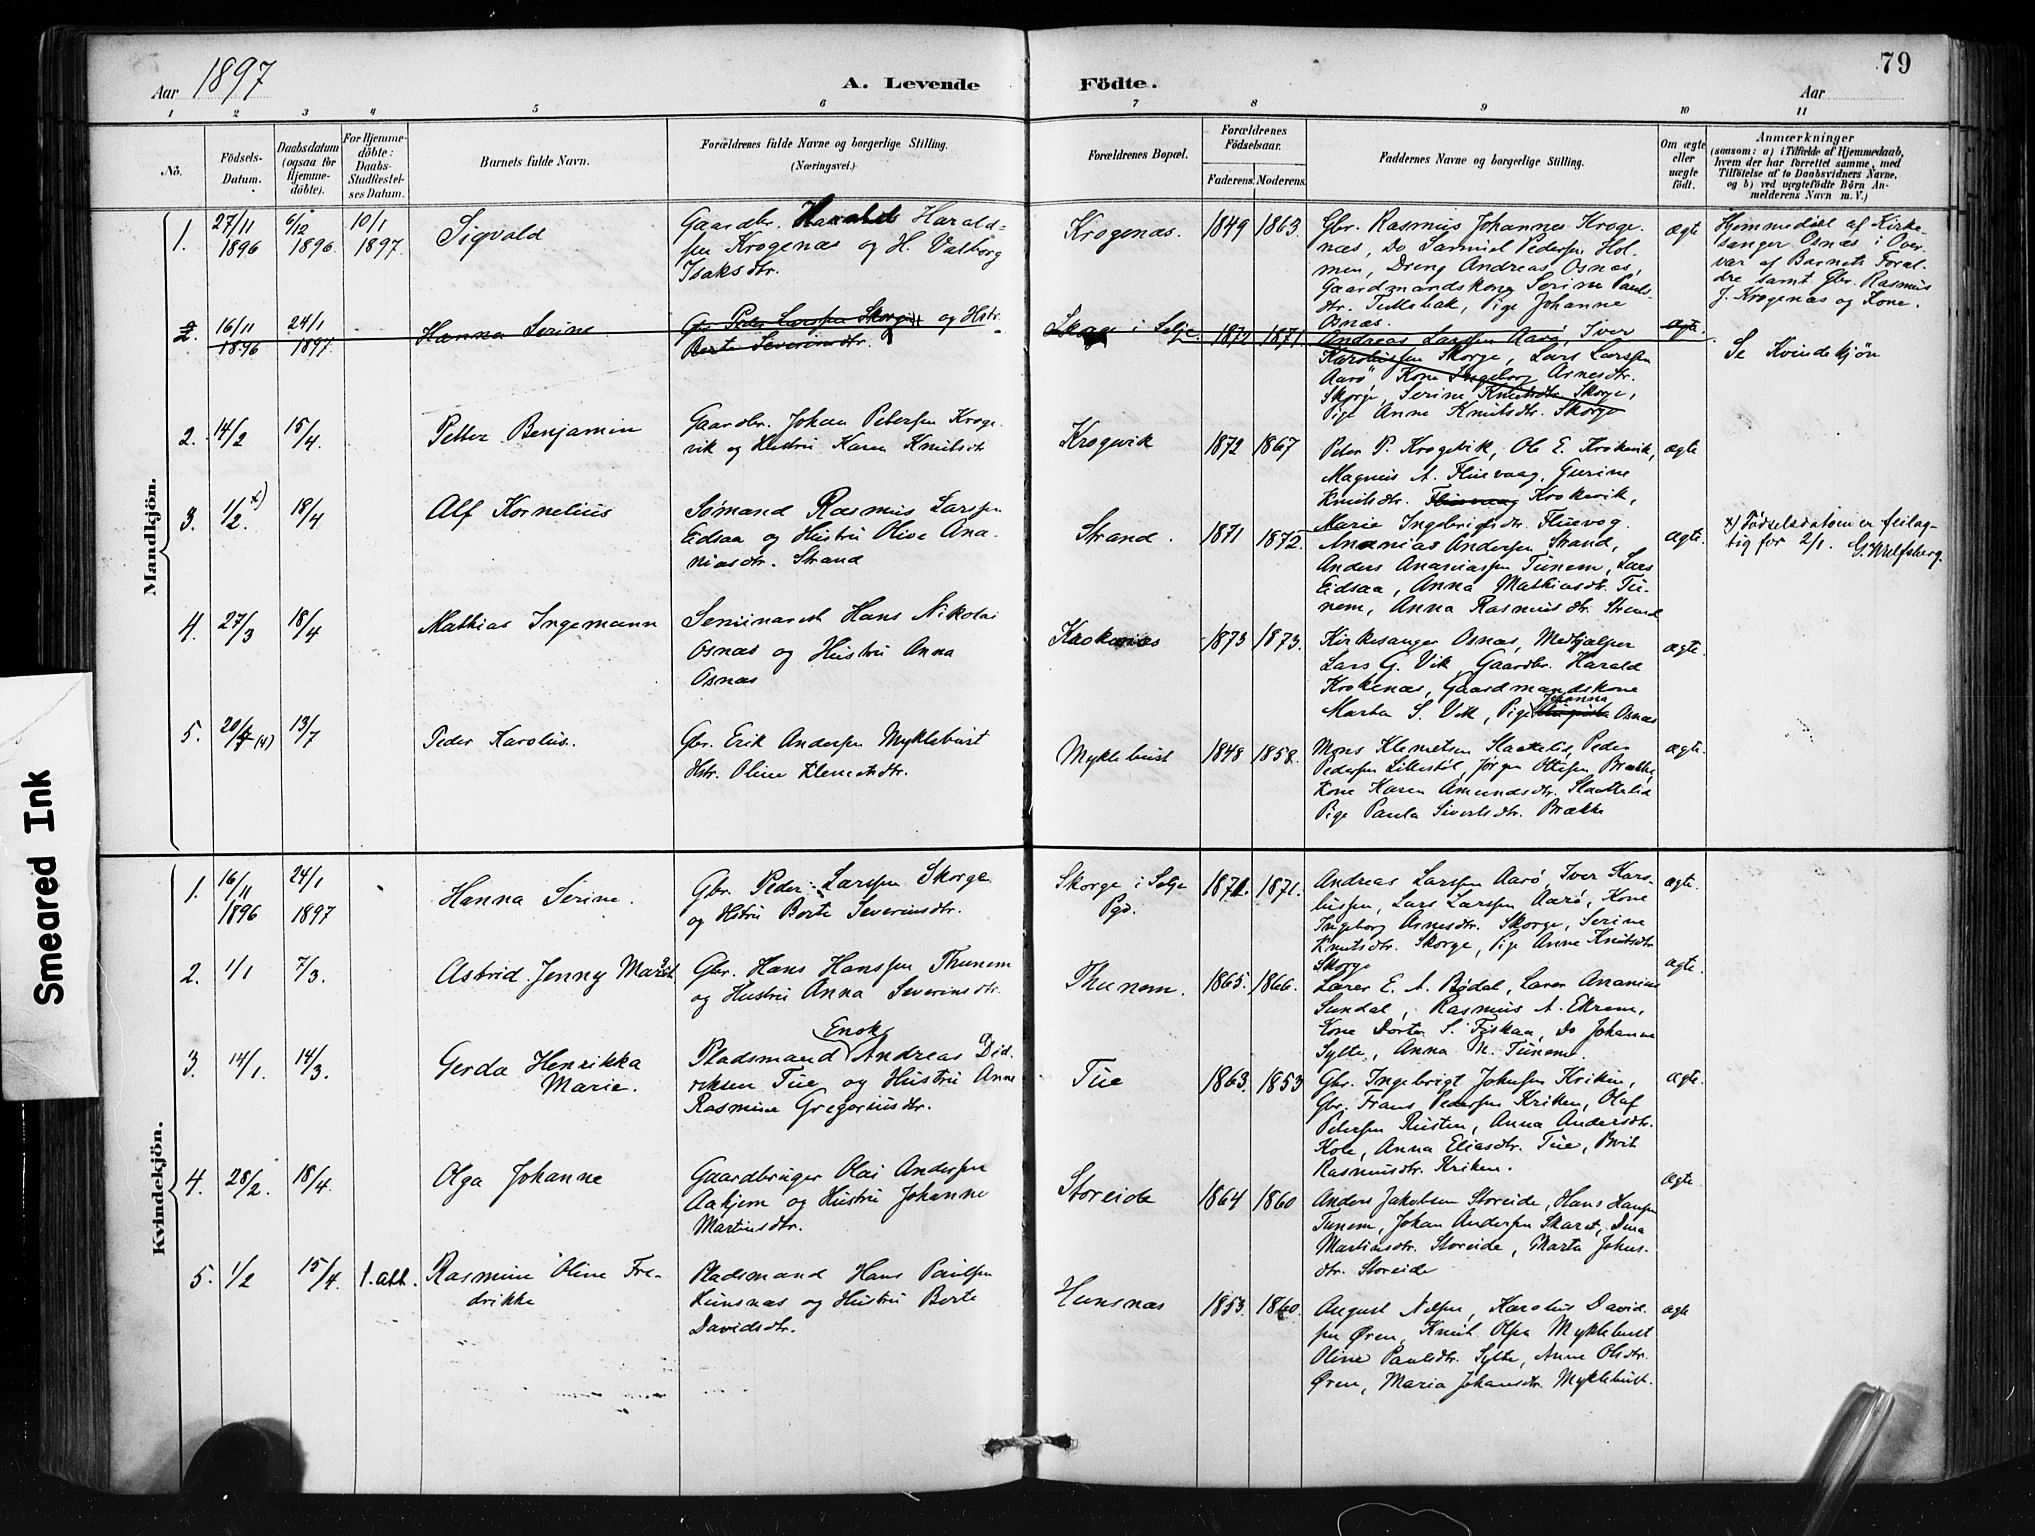 79
Aar 1897 A. Levende Födte. Aar
1 2 3 4 5 6 7 8 9 10 11
No.
Födsels-
Datum.
Daabsdatum
(ogsaa for
Hjemme-
döbte).
For Hjemme-
döbte:
Daabs-
Stadfæstel-
ses Datum.
Barnets fulde Navn.
Forældrenes fulde Navne og borgerlige Stilling.
(Næringsvei.)
Forældrenes Bopæl.
Forældrenes
Födselsaar.
Faderens. Moderens.
Faddernes Navne og borgerlige Stilling.
Om ægte
eller
uægte
födt.
Anmærkninger
(saasom: a) i Tilfælde af Hjemmedaab,
hvem der har forrettet samme, med
Tilföielse af to Daabsvidners Navne,
og b) ved uægtefödte Börn An-
melderens Navn m. V.)
Mandkjön.
1. 27/11 1896 6/12 1896. 10/1 1897. Sigvald
Gaardbr. Harald Harald-
sen Krogenæs og H. Valborg
Isaksdtr.
Krogenæs. 1849 1863.
Gbr. Rasmus Johannes Kroge-
næs, Do Samuel Pedersen Hol-
men, Dreng Andreas Osnæs,
Gaardmandskone Serine Pauls-
dtr. Tullebak, Pige Johanne
Osnæs.
ægte
Hjemmedöbt af Kirke-
sanger Osnæs i Over-
vær af Barnets Foræl-
dre samt Gbr. Rasmus
J. Krogenæs og Kone.
2. 16/11 1896 24/1 1897. Hanna Serine
Gbr Peder Larssen Skorge og Hstr.
Berte Severinsdtr.
Skorge i Selje 1872 1871.
Andreas Larssen Aarö, Iver
Karolussen Skorge, Lars Larssen
Aarö, Kone Ingeborg Arnesdtr.
Skorge, Serine Knutsdtr Skorge,
Pige Anne Knutsdtr. Skorge
ægte.
Se Kvindekjøn
2. 14/2 15/4. Petter Benjamin
Gaardbr. Johan Petersen Kroge-
vik og Hustru Karen Knutsdtr
Krogvik 1872 1867
Peter P. Krogevik, Ole E. Krokevik,
Magnus A. Fluevaag, Gurine
Knutsdtr. Fluevaag Krokevik,
Marie Ingebrigtsdtr. Fluevog.
ægte
3. 1/2. x) 18/4 Alf Kornelius
Sømand Rasmus Larssen
Eidsaa og Hustru Olive Ana-
niasdtr. Strand
Strand. 1871 1872.
Ananias Andersen Strand,
Anders Ananiassen Tunem, Lars
Eidsaa, Anna Mathiasdtr. Tu-
nem, Anna Rasmusdtr. Strand
ægte.
x) Fødselsdatoen er feilag-
tig for 2/1. G. Wulfsberg.
4. 27/3 18/4 Mathias Ingemann
Seminarist Hans Nikolai
Osnæs og Hustru Anna
Osnæs
Krokenæs 1873 1873.
Kirkesanger Osnæs, Medhjælper
Lars G. Vik, Gaardbr. Harald
Krokenæs, Gaardmandskone
Marta S. Vik, Pige Johanna Osnæs
ægte.
5. 13/7 Peder Karolus.
Gbr. Erik Andersen Myklebust
Hstr. Oline Klemetsdtr.
Myklebust 1848 1858.
Mons Klemetsen Slættelid, Peder
Pedersen Lillestöl, Jørgen Ottesen Brække,
Kone Karen Amundsdtr. Slættelid
Pige Paula Sivertsdtr. Brække
ægte.
Kvindekjön.
1. 16/11 1896 24/1 1897 Hanna Serine.
Gbr. Peder Larssen Skorge
og Hstru Berte Severinsdtr.
Skorge i Selje
Pgd.
1871.
Andreas Larssen Aarø, Iver Karo-
lussen, Lars Larssen Aarø, Kone
Ingeborg Arnesdtr. Skorge, Serine
Knutsdtr. Skorge, Pige Anne Knutsdtr
Skorge
ægte.
2. 1/1 7/3. Astrid Jenny
Gbr. Hans Hanssen Thunem
og Hustru Anna Severinsdtr.
Thunem. 1865. 1866.
Lærer E. A. Bødal, Lærer Ananias
Sundal, Rasmus A. Ekrem,
Kone Dorte S. Fiskaa, Do Johanne
Sylte, Anna M. Tunem.
ægte.
3. 14/1. 14/3. Gerda Henrikka
Marie.
Enok
Pladsmand Andreas Did-
riksen Tue og Hustru Anne
Rasmine Gregoriusdtr.
Tue 1863. 1853
Gbr. Ingebrigt Johnsen Kriken,
Gbr. Frans Pedersen Kriken, Olaf
Petersen Rusten, Anna Andersdtr.
Kole, Anna Eliasdtr. Tue, Brit
Rasmusdtr. Kriken.
ægte.
4. 28/2. 18/4. Olga Johanne
Gaardbruger Olai Andersen
Aahjem og Hustru Johanne
Martinusdtr.
Storeide 1864 1860
Anders Jakobsen Storeide, Hans Hansen
Tunem, Johan Andersen Skaret, Dina
Martinsdtr. Storeide, Marta Johns-
dtr. Storeide
ægte
5. 1/2 15/4. 1. att. Rasmine Oline Fre-
drikke
Pladsmand Hans Paulsen
Hunsnæs og Hustru Berte
Davidsdtr.
Hunsnæs 1853. 1860.
August Nilsen, Karolus David-
sen Øren, Knut Olsen Myklebust
Oline Paulsdtr. Sylte, Anne Olsdtr.
Øren, Maria Johansdtr. Myklebust.
ægte
Smeared Ink